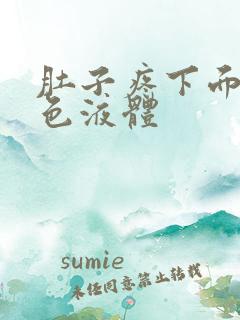 肚子疼下而
色液體
sumie
未经同意禁止转载